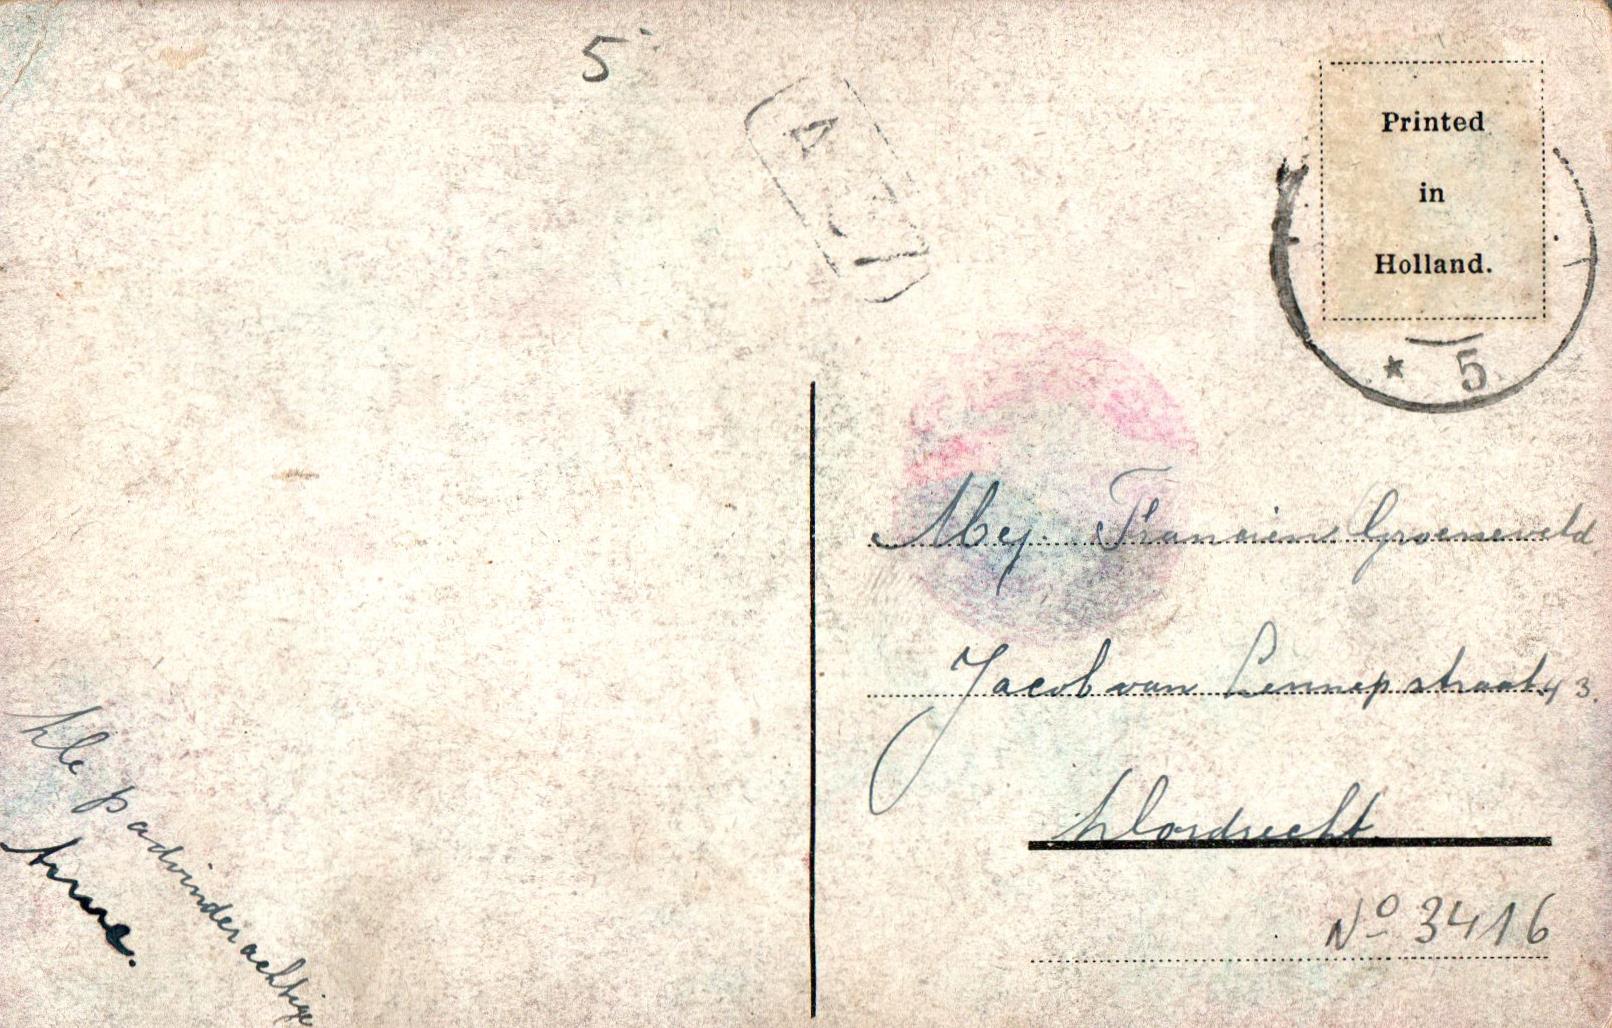 5
Printed
in
Holland.
* 5
Mej. Francien Groeneveld
Jacob van Lennepstraat 43.
Dordrecht
No 3416
De padvinderachtige
Anne.